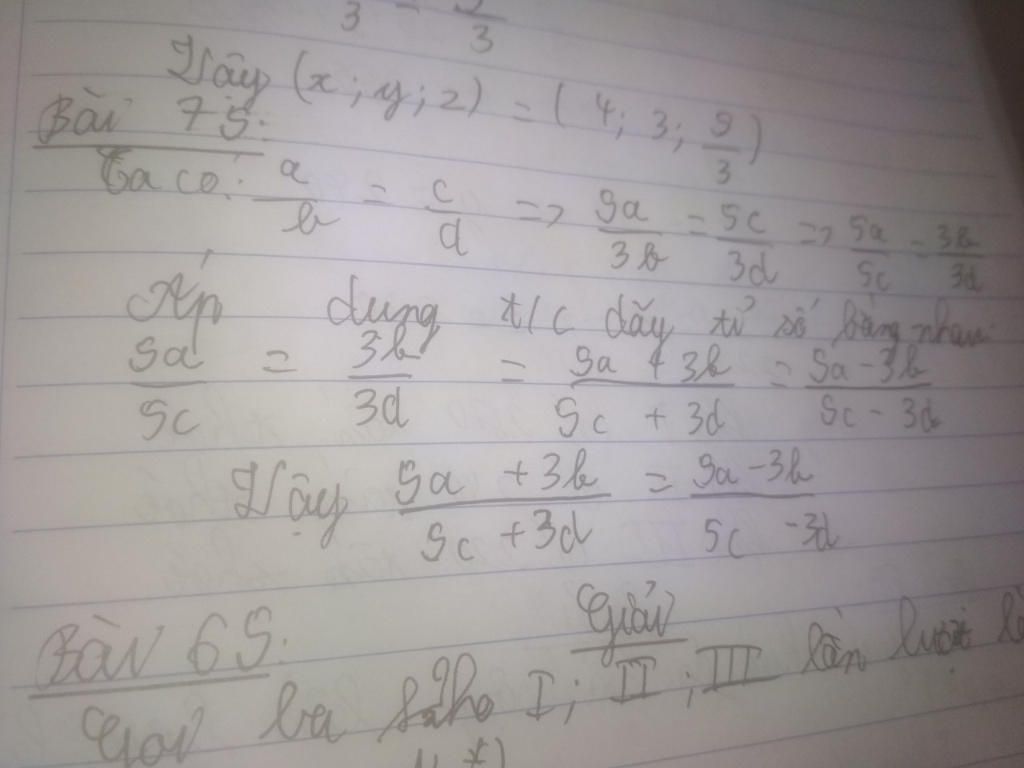 3 = 5/3
Vậy (x; y; z) = (4; 3; 5/3)
Bài 75:
Ta có: a/b = c/d => 5a/3b = 5c/3d => 5a/5c = 3b/3d
Áp dung t/c dãy tỉ số bằng nhau:
5a/5c = 3b/3d = 5a + 3b/5c + 3d = 5a - 3b/5c - 3d
Vậy 5a + 3b/5c + 3d = 5a - 3b/5c - 3d
Giải
Bài 65:
Gọi ba I; II; III lần lượt